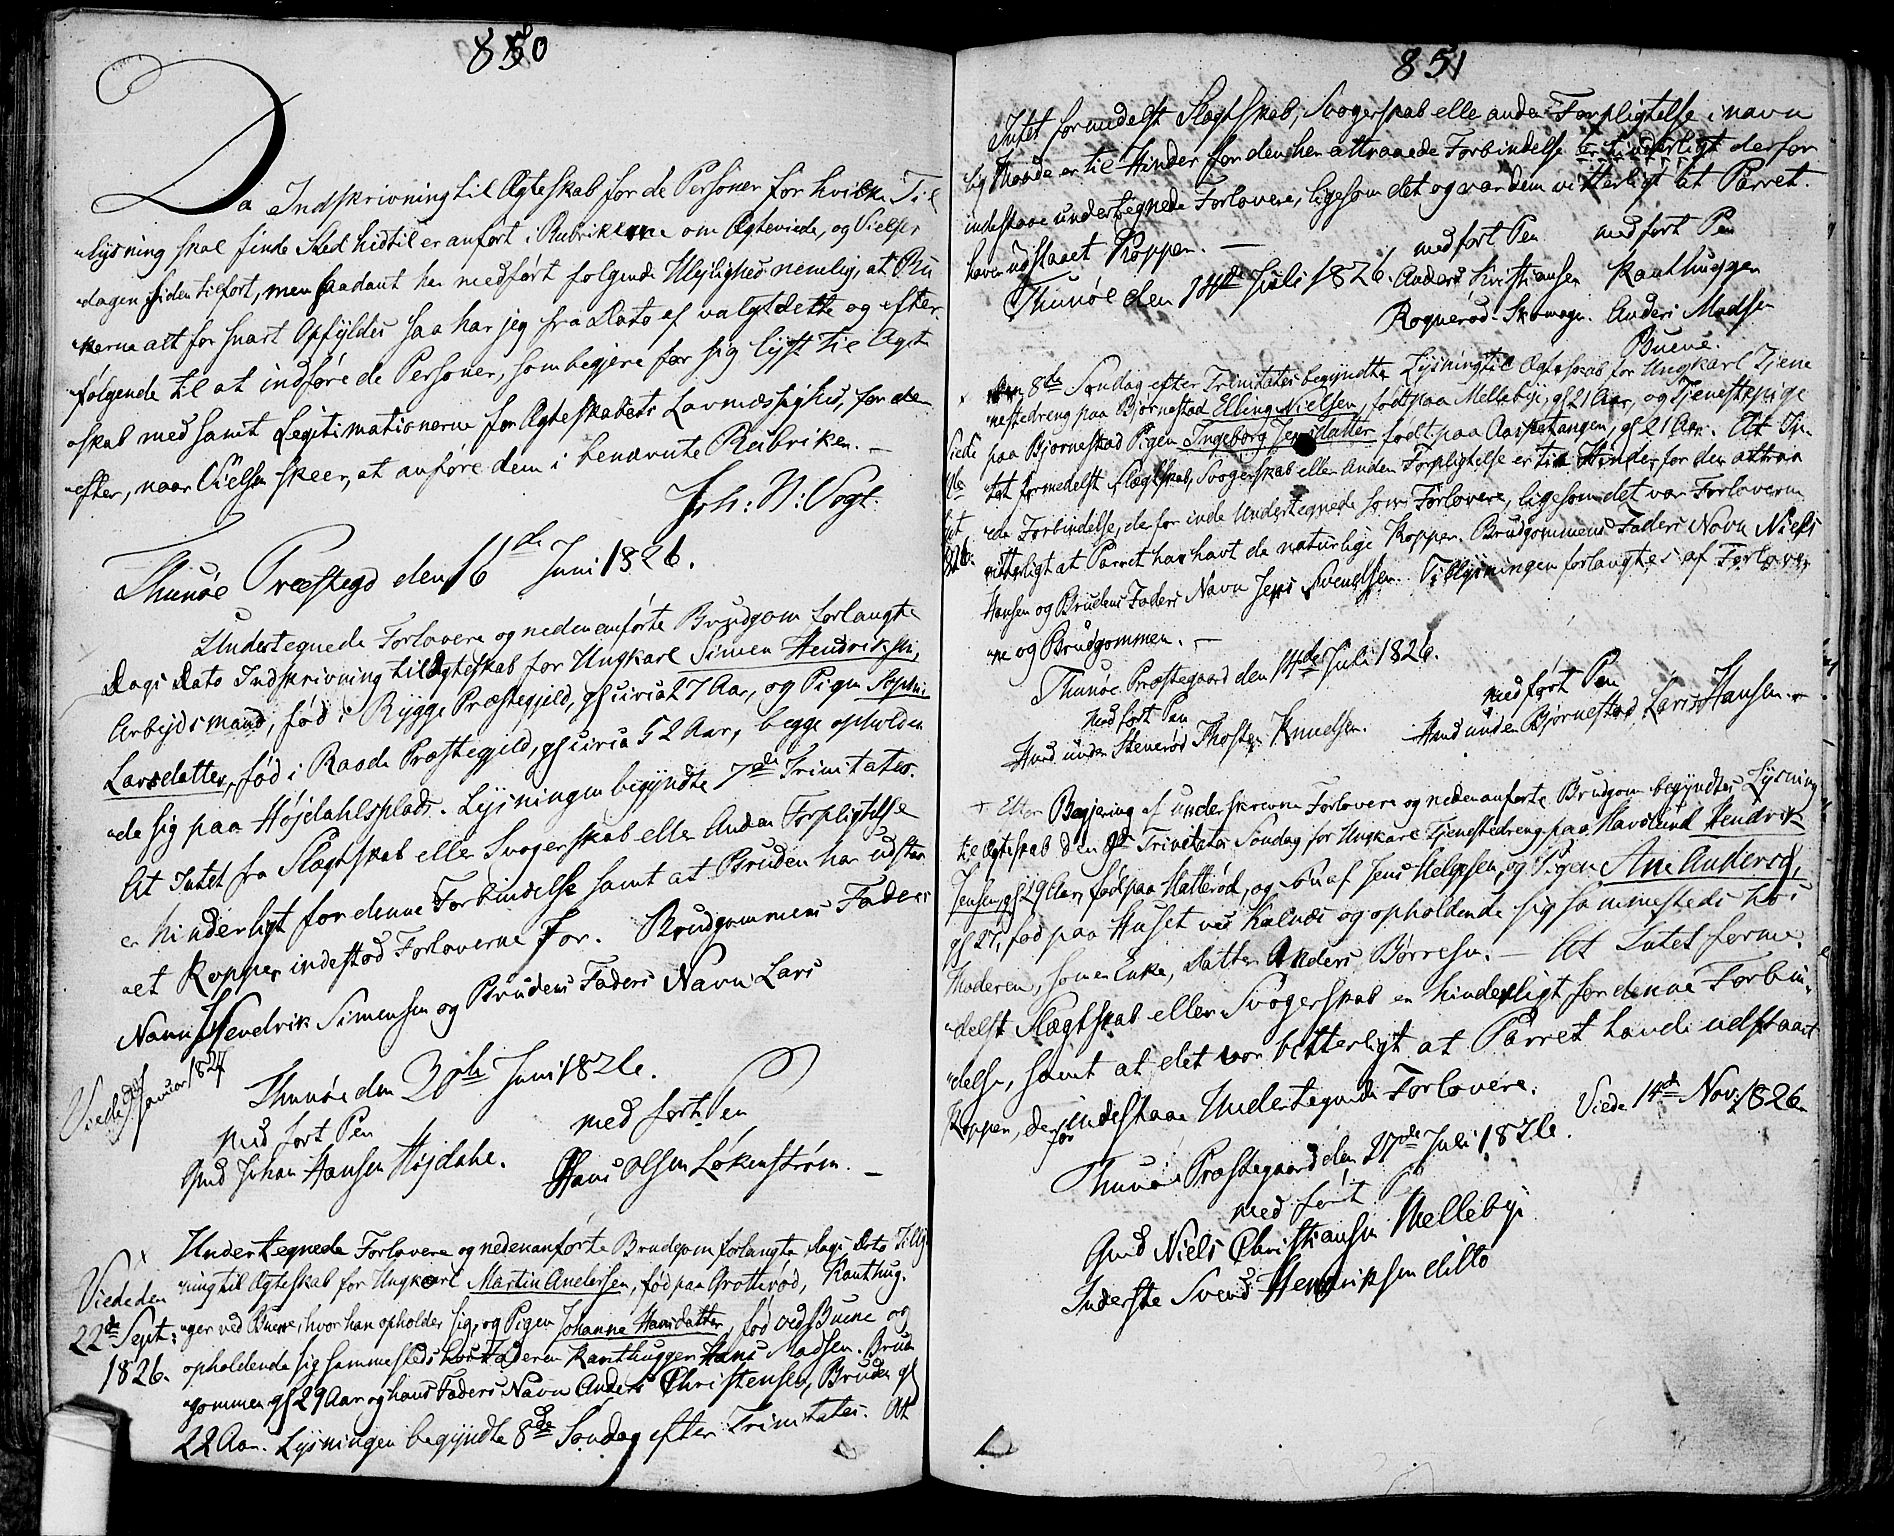 850
Da Indskrivning til Ægteskab for de Personer for hvilken Til
lysning skal finde Sted hidtil er anført i Rubrikerne om Ægteviede, og Vielses
dagen siden tilført, men saadant har medført følgende Ulejlighed nemlig, at Ru
rkerne alt for snart Opfyldes saa har jeg fra Dato af valgt dette og efter
følgende til at indføre de Personer, som begjere for sig lyst til Ægt
eskab med samt Legitimationerne for Ægteskabets Lovmæssighed, for der
efter, naar Vielsen skeer, at anføre dem i benævnte Rubriken. -
Joh: N: Vogt.
Thunøe Præstegd den 16de Juni 1826.
Undertegnede Forlovere og nedenanførte Brudgom forlangte
Dags Dato Indskrivning til Ægteskab for Ungkarl Simen Hendriksen,
Arbejdsmand, fød i Rygge Præstegjeld, gl circa 27 Aar, og Pigen Sophie
Larsdatter, fød i Raade Præstegjeld, gl circa 52 Aar, begge opholden
de sig paa Højdahlsplads. Lysningen begyndte 7de Trinitatis.
At Intet fra Slægtskab eller Svogerskab elle Anden Forpligtelse
er hinderligt for denne Forbindelse samt at Bruden har udstaa
aet Kopper indestod Forloverne for. Brudgommens Faders
Navn Hendrik Simensen og Brudens Faders Navn Lars
Viede Januar 1827
Thunøe den 30te Juni 1826.
med ført Pen
med ført Pen
Gmd Johan Hansen Højdahl.
Hans Olsen Løkenstrøm. -
x Undertegnede Forlovere og nedenanførte Brudgom forlangte Dags Dato Tillys
Viede den
ning til Ægteskab for Ungkarl Martin Andersen, fød paa Grotterød, Kanthug
22de Sept:
ger ved Buene, hvor han opholder sig, og Pigen Johanne Hansdatter, fød ved Buene og
1826.
opholdende sig sammesteds hos Faderen Kanthugger Hans Madsen. Brud
gommen gl 29 Aar og hans Faders Navn Anders Christensen, Bruden gl
22 Aar. Lysningen begyndte 8de Søndag efter Trinitatis. At
851
Intet formedelst Slægtskab, Svogerskab elle anden Forpligtelse i navn
lig Maade er til Hinder for den her attraaede Forbindelse er hinderligt derfor
indestaae undertegnede Forlovere, ligesom det og var dem vitterligt at Parret
haver udstaaet Kopper. -
Thunøe den 14de Juli 1826.
med ført Pen
med ført Pen
Anders Christiansen
Kanthugger
Rognerød Skomagr.
Anders Madsen
Buene.
x Den 8de Søndag efter Trinitatis begyndte Lysning til Ægteskab for Ungkarl Tjene
nestedreng paa Bjørnestad Elling Nielsen, født paa Mellebye, gl 21 Aar, og Tjenestepige
Viede
paa Bjørnestad Pigen Ingeborg Jensdatter født paa Aasketangen, gl 21 Aar. At In
tet formedelst Slægtskab, Svogerskab eller Anden Forpligtelse er til Hinder for den attraa
de Forbindelse, derfor inde Undertegnede som Forlovere, ligesom det var Forloverne
1826.
vitterligt at Parret har havt de naturlige Kopper. Brudgommens Faders Navn Niels
Hansen og Brudens Faders Navn Jens Svendsen. Tillysningen forlangtes af Forlover
ne og Brudgommen. -
Thunøe Præstegaard den 14de Juli 1826.
med ført Pen
med ført Pen
Huusd under Stenerød Thosten Knudsen.
Huusd under Bjørnestad Lars Hansen. -
+ Efter Begjering af underskrevne Forlovere og nedenanførte Brudgom begyndtes Lysning
til Ægteskab den 9de Trinitatis Søndag for Ungkarl Tjenestedreng paa Havslund Hendrik
Jensen, gl 29 Aar, fød paa Hatterød, og Søn af Jens Helgesen, og Pigen Ane Andersd,
gl 27, fød paa Huset ved Kalnæs og opholdende sig sammesteds hos
Moderen, som er Enke, Datter Anders Børresen. - At Intet forme
delst Slægtskab eller Svogerskab er hinderligt for denne Forbin
delse, samt at det var bitterligt at Parret havde udstaaet
Kopper, derfor indestaae Undertegnede Forlovere.
Viede 14de Nov: 1826.
Thunøe Præstegaard den 27de Juli 1826.
med ført P
Gmd Niels Christiansen Mellebye
Inderste Svend Hendriksen ditto